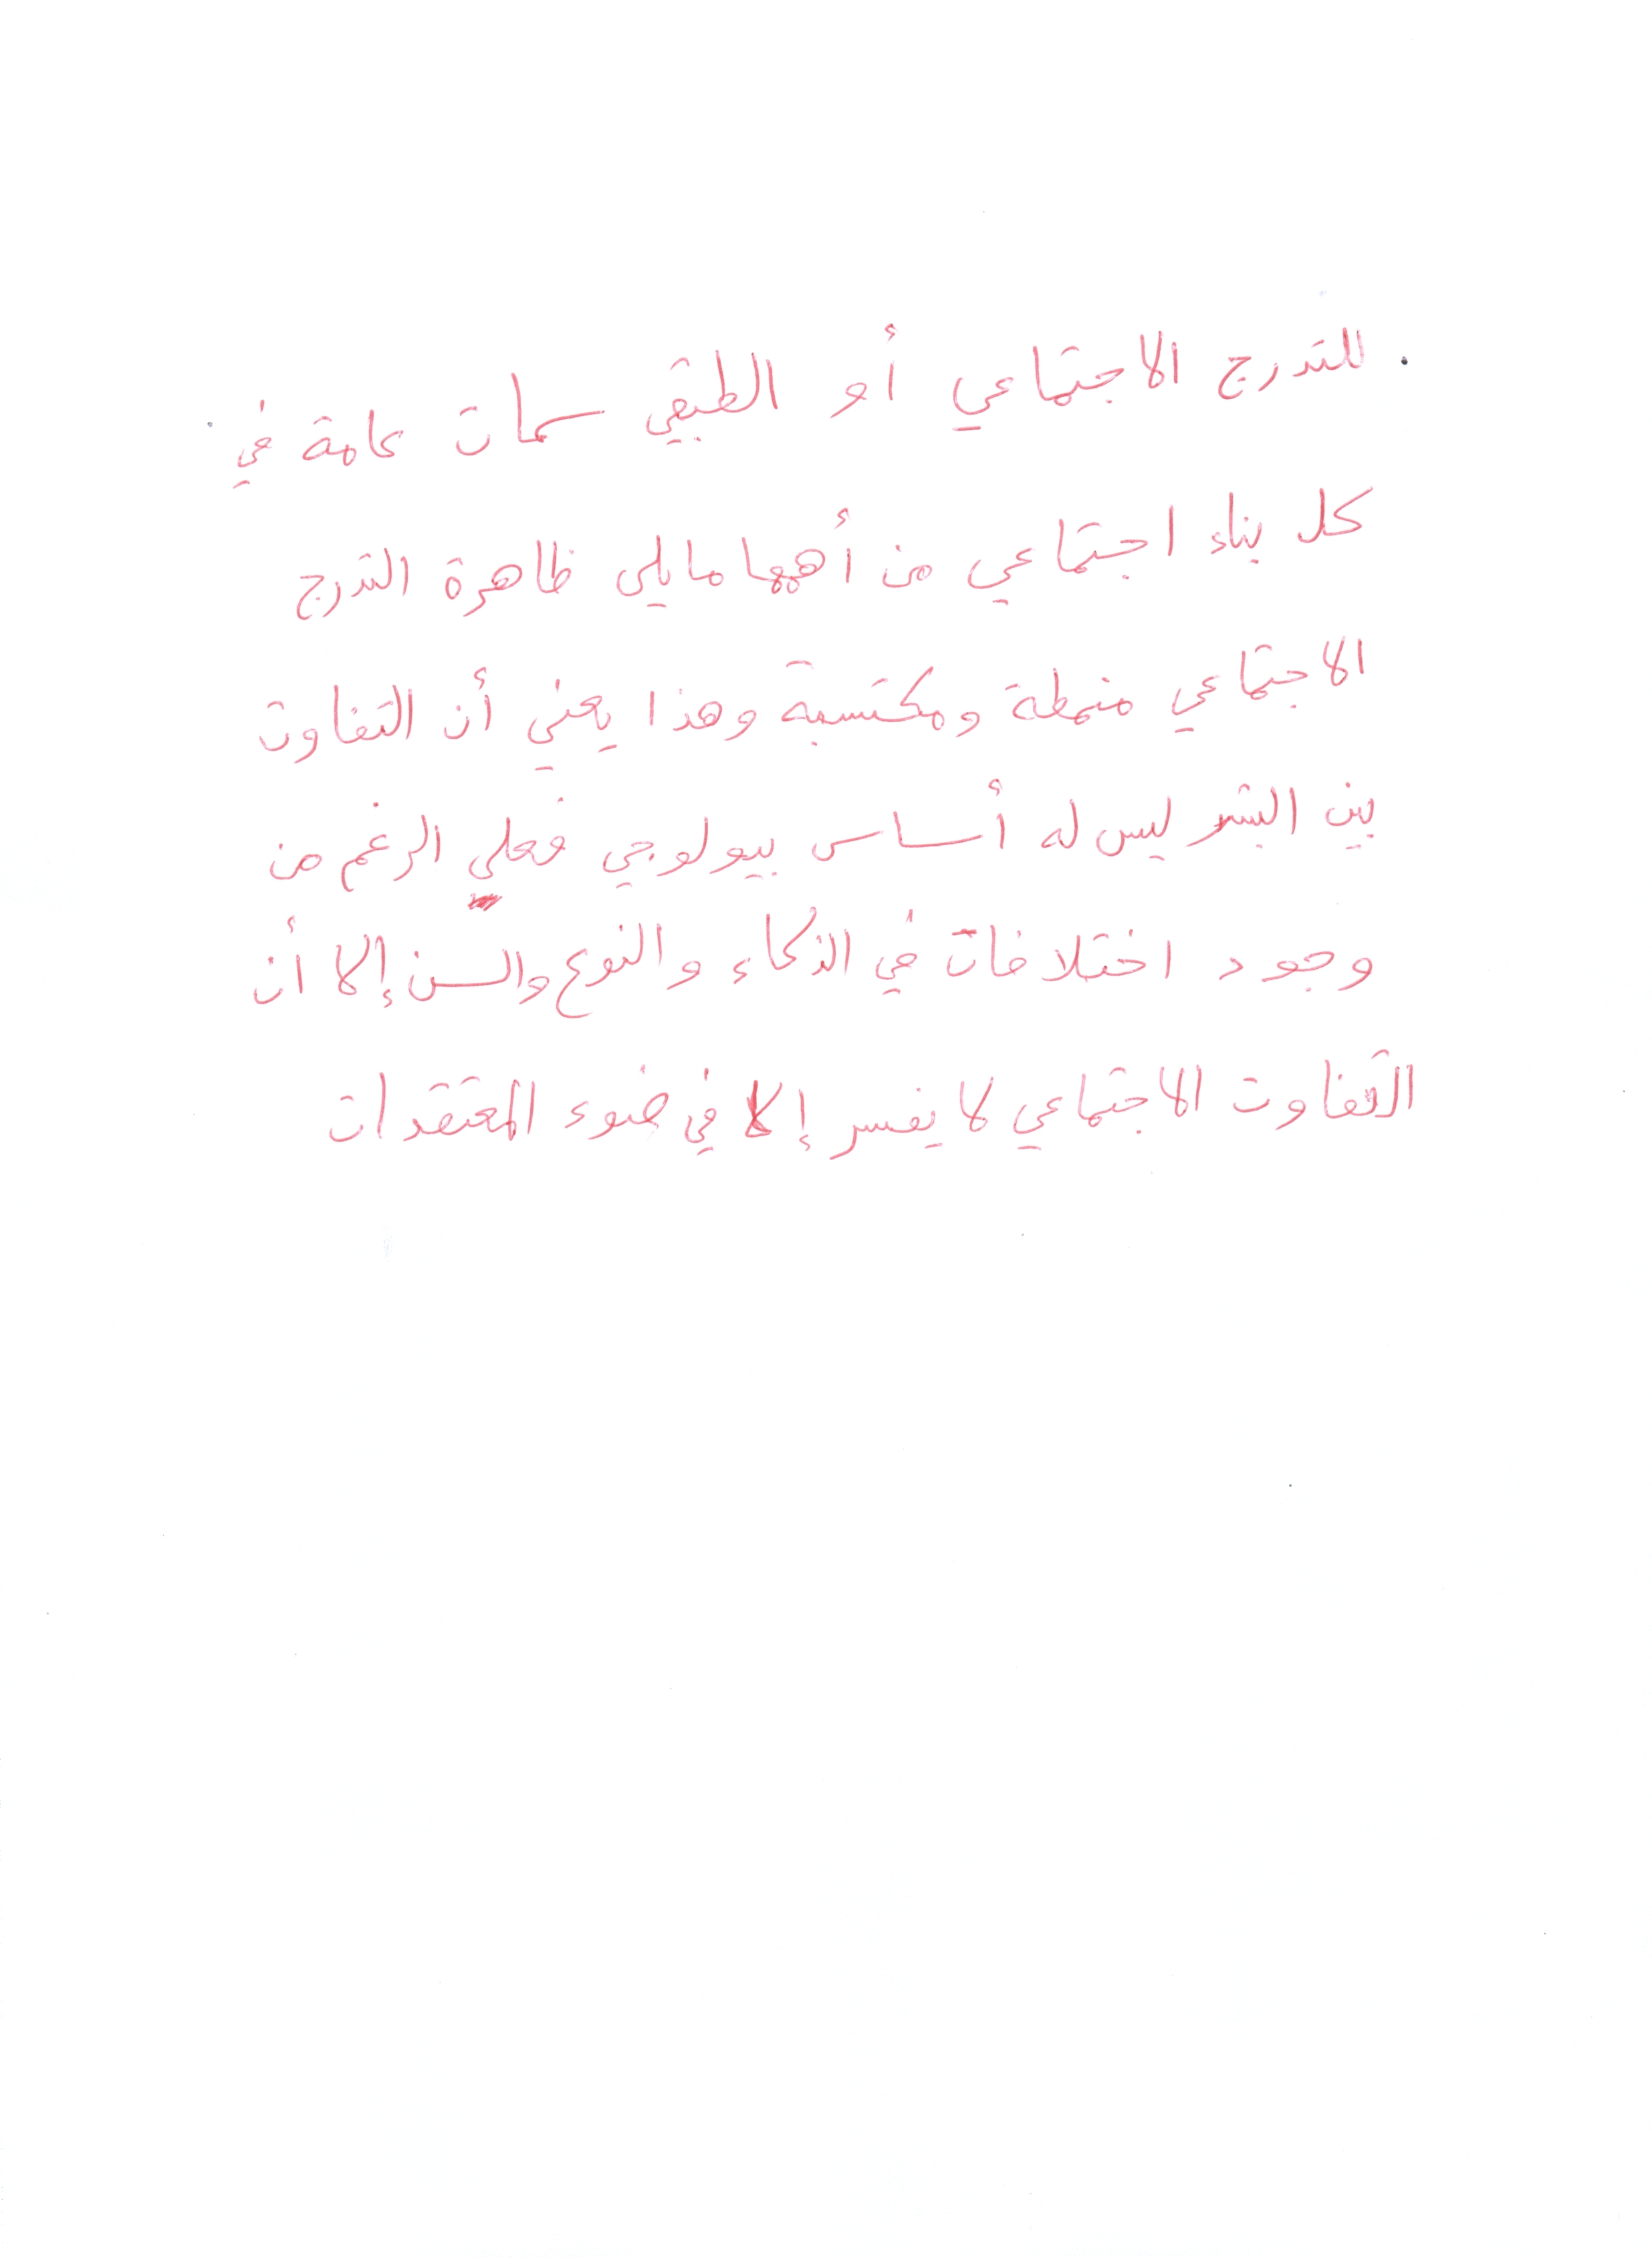 للتدرج الاجتماعي أو الطبقي سمات عامة في
كل بناء اجتماعي من أهمها مايلي ظاهرة التدرج
الاجتماعي منمطة ومكتسبة وهذا يعني أن التفاوت
بين البشر ليس له أساس بيولوجي فعلي الرغم من
وجود اختلافات في الذكاء والنوع والسن إلا أن
التفاوت الاجتماعي لا يفسر إلا في ضوء المعتقدات